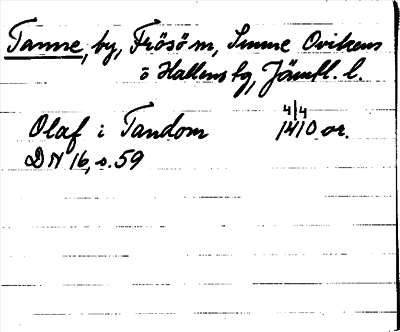 Tanne, by, Frösö m, Sunne Ovikens
o Hallens tg, Jämtl. l.
4/4
Olaf i Tandom 1410 or.
DN 16, s. 59